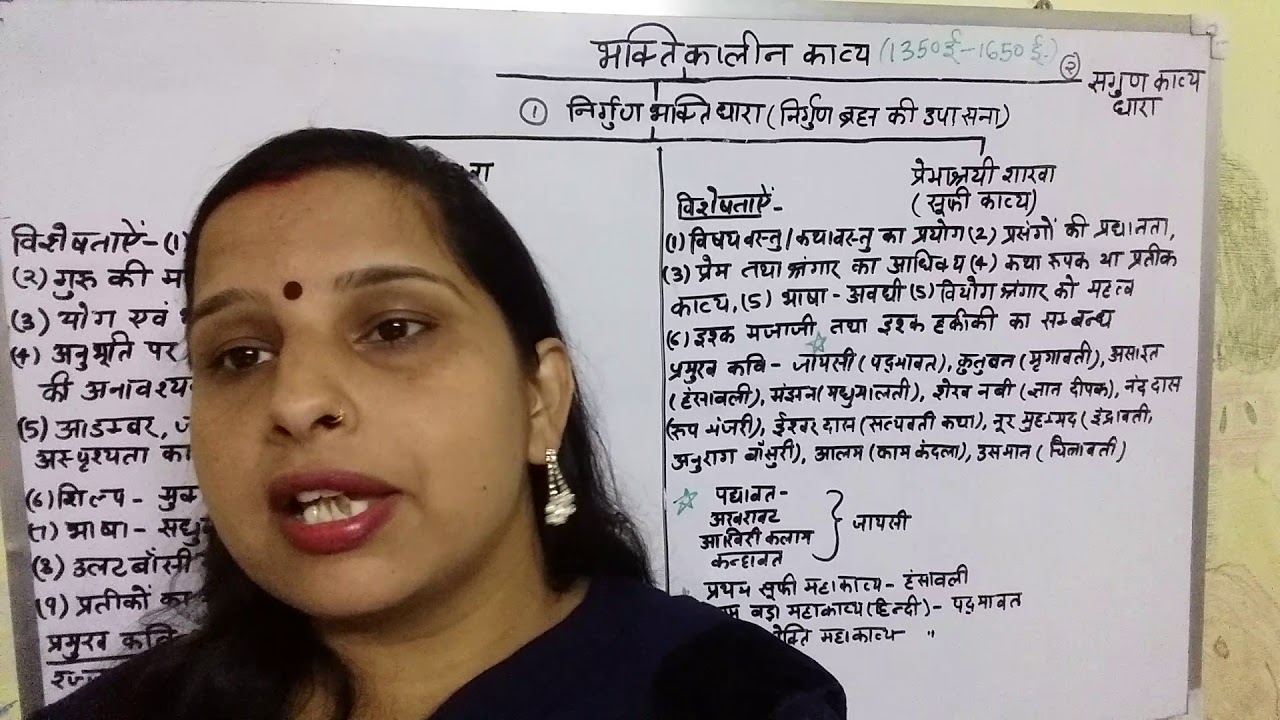 भक्तिकालीन काव्य (1350ई-1650ई.)
② सगुण काव्य
धारा
① निर्गुण भक्ति धारा (निर्गुण ब्रह्म की उपासना)
प्रेमाश्रयी शाखा
(सूफी काव्य)
विशेषताऐं- (1)
(2) गुरु की
(3) योग एवं
(4) अनुभूति पर
की
(5) आडम्बर,
अस्पृश्यता का
(6) शिल्प -
(7) भाषा -
(8) उलटबाँसी
(9) प्रतीकों का
प्रमुख कवि
विशेषताऐं-
(1) विषय वस्तु/कथावस्तु का प्रयोग (2) प्रसंगों की प्रधानता,
(3) प्रेम तथा श्रंगार का आधिक्य (4) कथा रूपक या प्रतीक
काव्य, (5) भाषा - अवधी (5) वियोग श्रंगार को महत्व
(6) इश्क मजाजी तथा इश्क हकीकी का सम्बन्ध
प्रमुख कवि - जायसी (पद्मावत), कुतुबन (मृगावती), असाइत
(हंसावली), मंझन (मधुमालती), शेख नबी (ज्ञान दीपक), नंद दास
(रूप मंजरी), ईश्वर दास (सत्यवती कथा), नूर मुहम्मद (इंद्रावती,
अनुराग बाँसुरी), आलम (काम कंदला), उसमान (चित्रावती)
पद्मावत-
अखरावट
आखिरी कलाम
कन्हावत
जायसी
प्रथम सूफी महाकाव्य - हंसावली
बड़ा महाकाव्य (हिन्दी) - पद्मावत
महाकाव्य- "